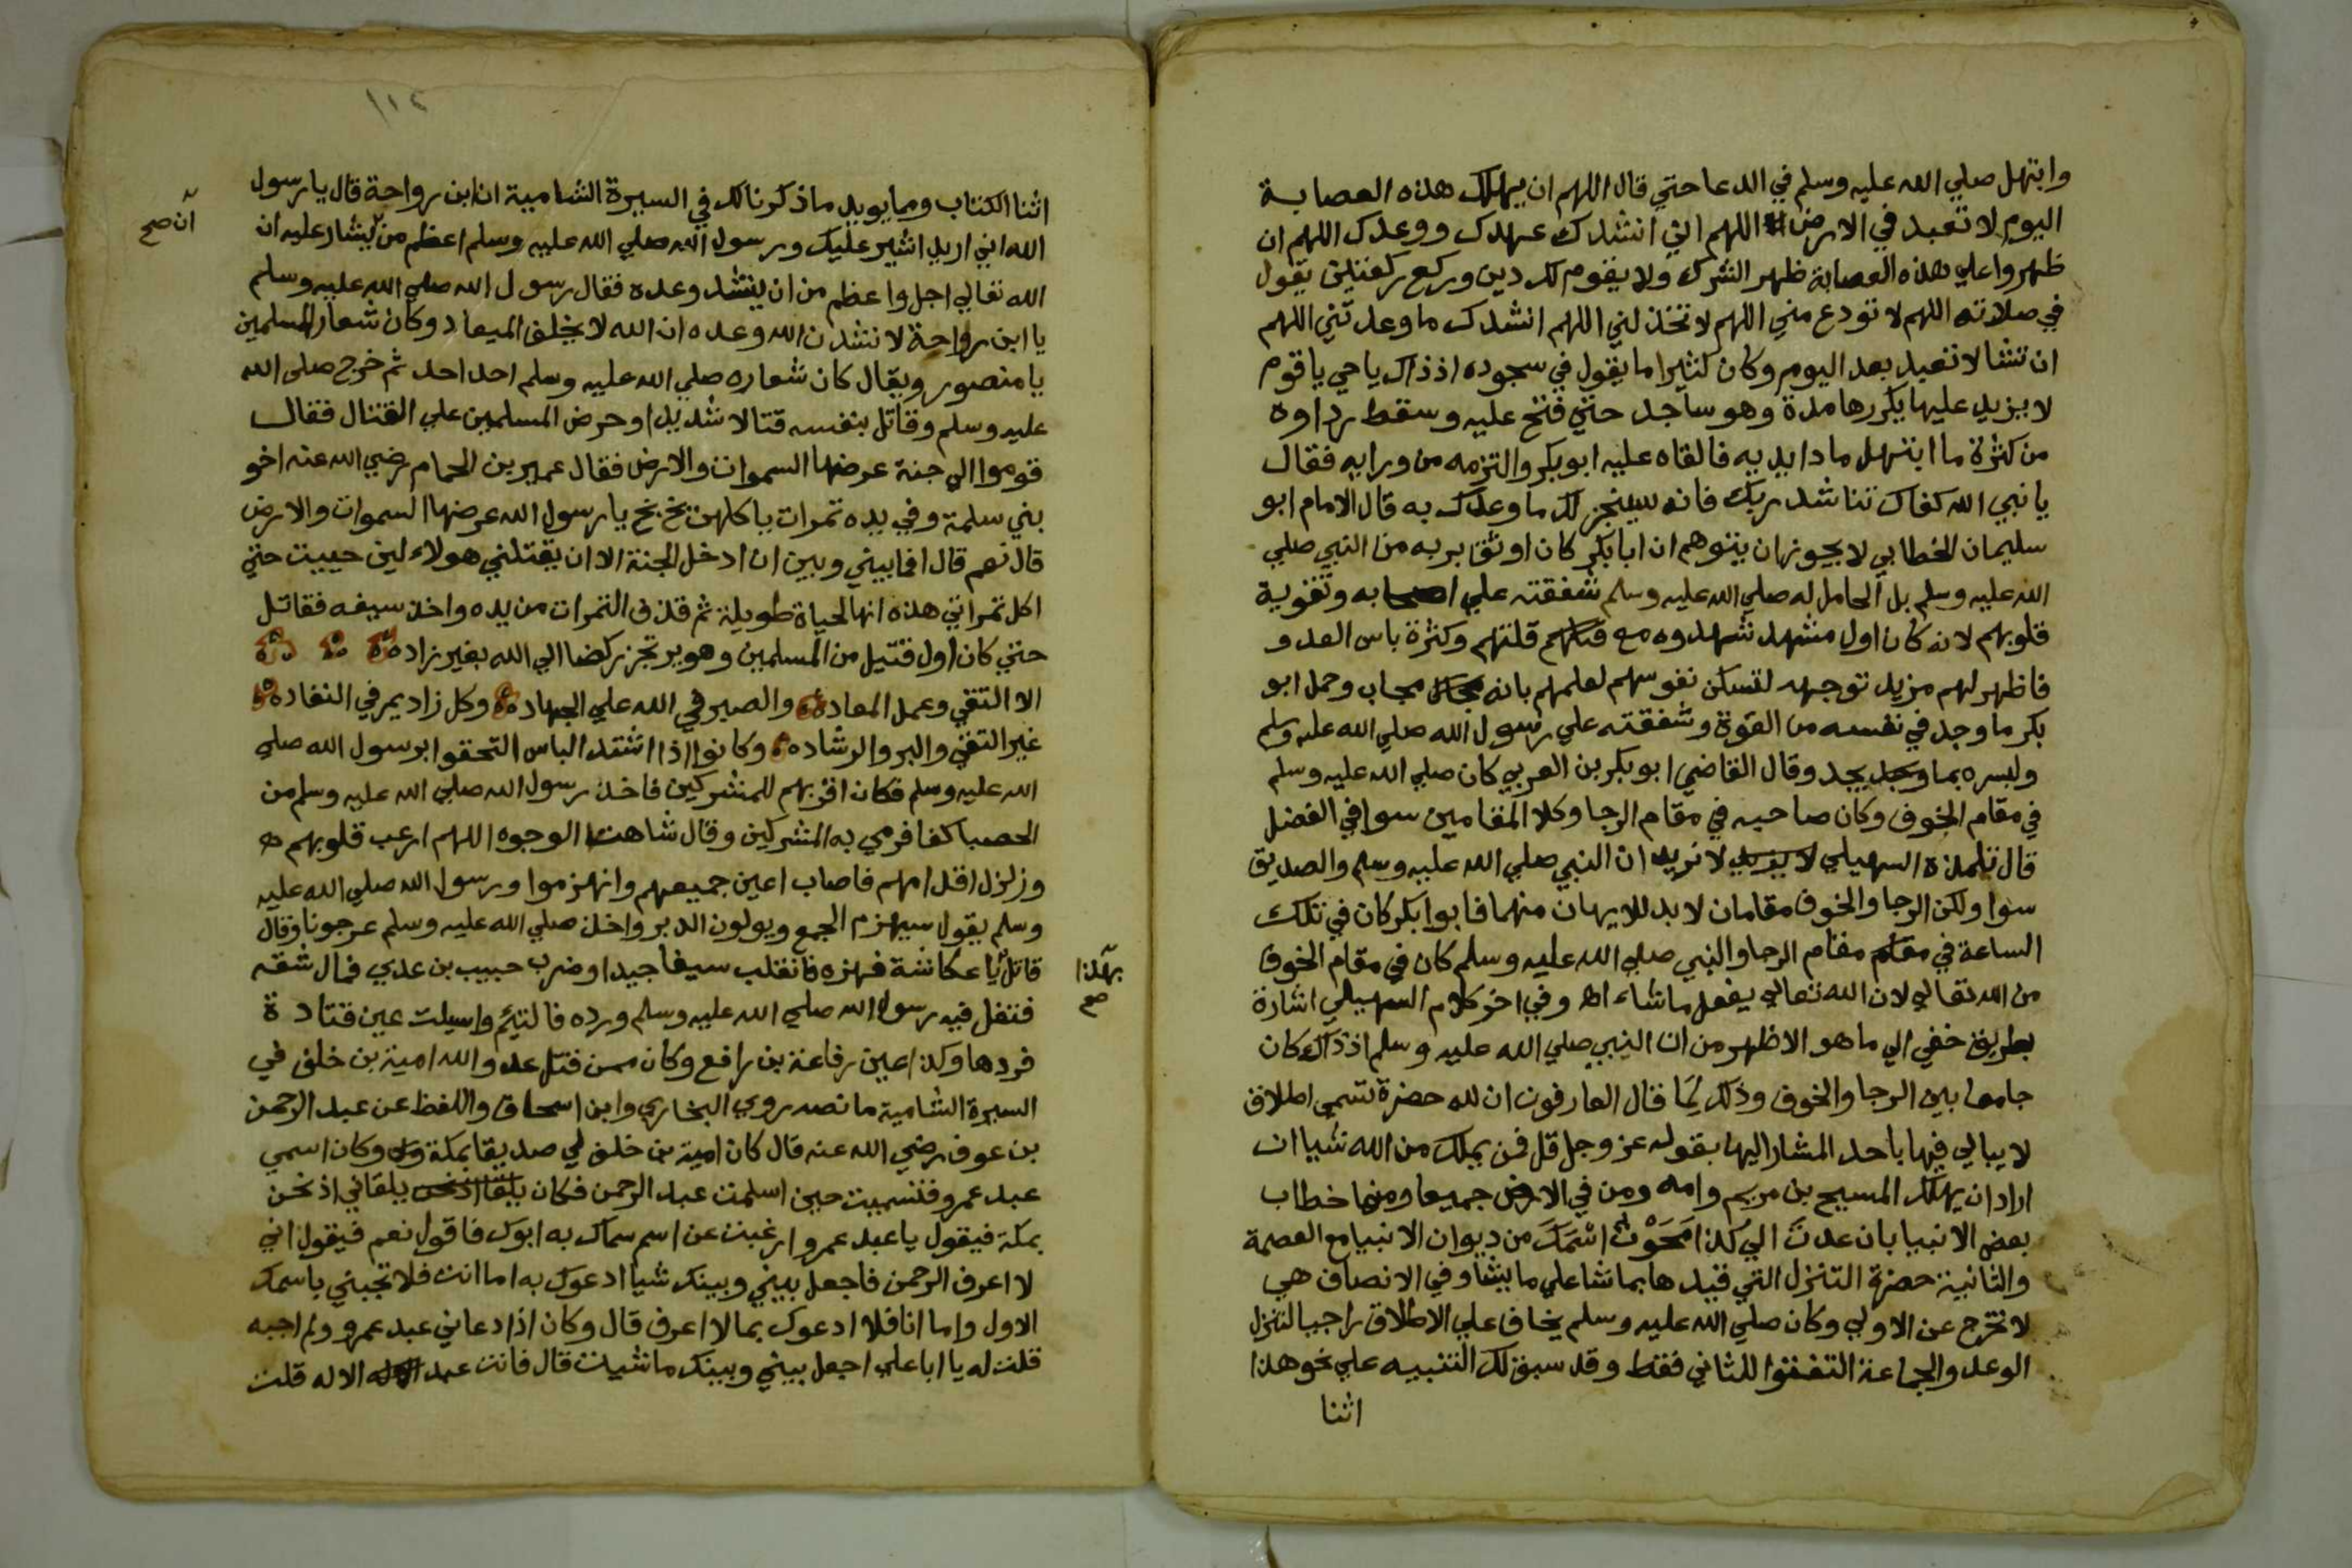 وابتهل صلي الله عليه وسلم في الدعا حتي قال اللهم ان يهلك هذه العصابة
اليوم لا تعبد في الارض اللهم اني انشدك عهدك ووعدك اللهم ان
ظهروا علي هذه العصابة ظهر الشرك ولا يقوم لك دين وركع ركعتين يقول
في صلاته اللهم لا تودع مني اللهم لا تخذلني اللهم انشدك ما وعدتني اللهم
ان تشا لا تعبد بعد اليوم وكان كثيرا ما يقول في سجوده اذ ذاك يا حي يا قوم
لا يزيد عليها يكررها مدة وهو ساجد حتي فتح عليه وسقط رداوه
من كثرة ما ابتهل مادا يديه فالقاه عليه ابو بكر والتزمه من ورايه فقال
يا نبي الله كفاك تناشد ربك فانه سينجز لك ما وعدك به قال الامام ابو
سليمان الخطابي لا يجوز ان يتوهم ان ابا بكر كان اوثق بربه من النبي صلي
الله عليه وسلم بل الحامل له صلي الله عليه وسلم شفقته علي اصحابه وتقوية
قلوبهم لانه كان اول مشهد شهدوه مع قلتهم وكثرة باس العدو
فاظهر لهم مزيد توجهه لتسكن نفوسهم لعلمهم بانه مجاب وحمل ابو
بكر ما وجد في نفسه من القوة وشفقته علي رسول الله صلي الله عليه وسلم
وليسره بما يجد وقال القاضي ابو بكر بن العربي كان صلي الله عليه وسلم
في مقام الخوف وكان صاحبه في مقام الرجا وكلا المقامين سوا في الفضل
قال تلمذه السهيلي لا نريد ان النبي صلي الله عليه وسلم والصديق
سوا ولكن الرجا والخوف مقامان لا بد للايمان منهما فابوا بكر كان في تلك
الساعة في مقام الرجا والنبي صلي الله عليه وسلم كان في مقام الخوف
من الله تعالي لان الله تعالي يفعل ما شاء اه وفي اخر كلام السهيلي اشارة
بطريق خفي الي ما هو الاظهر من ان النبي صلي الله عليه وسلم اذ ذاك كان
جامعا بين الرجا والخوف وذلك لما قال العارفون ان لله حضرة تسمي اطلاق
لا يبالي فيها باحد المشار اليها بقوله عز وجل قل فمن يملك من الله شيا ان
اراد ان يهلك المسيح بن مريم وامه ومن في الارض جميعا ومنها خطاب
بعض الانبيا بان عدت الي كذا محوت اسمك من ديوان الانبيا مع العصمة
والثانية حضرة التنزل التي قيدها بما شا علي ما يشا وفي الانصاف هي
لا تخرج عن الاولي وكان صلي الله عليه وسلم يخاف علي الاطلاق راجيا لتنزل
الوعد والجماعة التفتوا للثاني فقط وقد سبق لك التنبيه علي نحو هذا
اثنا
١١٢
اثنا الكتاب ومما يويد ما ذكرنا لك في السيرة الشامية ان ابن رواحة قال يا رسول
الله اني اريد اشير عليك ورسول الله صلي الله عليه وسلم اعظم من يشار عليه ان
ان صح
الله تعالي اجل واعظم من ان ينشد وعده فقال رسول الله صلي الله عليه وسلم
يا ابن رواحة لا نشدن الله وعده ان الله لا يخلف الميعاد وكان شعار المسلمين
يا منصور ويقال كان شعاره صلي الله عليه وسلم احد احد ثم خرج صلي الله
عليه وسلم وقاتل بنفسه قتالا شديدا وحرض المسلمين علي القتال فقال
قوموا الي جنة عرضها السموات والارض فقال عمير بن الحمام رضي الله عنه اخو
بني سلمة وفي يده تمرات ياكلهن بخ بخ يا رسول الله عرضها السموات والارض
قال نعم قال افما بيني وبين ان ادخل الجنة الا ان يقتلني هولاء لين حييت حتي
اكل تمراتي هذه انها لحياة طويلة ثم قذف التمرات من يده واخذ سيفه فقاتل
حتي كان اول قتيل من المسلمين وهو يرتجز ركضا الي الله بغير زاد
الا التقي وعمل المعاد والصبر في الله علي الجهاد وكل زاد يمر في النفاد
غير التقي والبر والرشاد وكانوا اذا اشتد الباس التحقوا برسول الله صلي
الله عليه وسلم فكان اقربهم للمشركين فاخذ رسول الله صلي الله عليه وسلم من
الحصبا كفا فرمي به المشركين وقال شاهت الوجوه اللهم ارعب قلوبهم
وزلزل اقدامهم فاصاب اعين جميعهم وانهزموا ورسول الله صلي الله عليه
وسلم يقول سيهزم الجمع ويولون الدبر واخذ صلي الله عليه وسلم عرجونا وقال
قاتل يا عكاشة فهزه فانقلب سيفا جيدا وضرب حبيب بن عدي فمال شقه
بهذا صح
فتفل فيه رسول الله صلي الله عليه وسلم ورده فالتئم واسيلت عين قتادة
فردها وكذا عين رفاعة بن رافع وكان ممن قتل عدو الله امية بن خلف في
السيرة الشامية ما نصه روي البخاري وابن اسحاق واللفظ عن عبد الرحمن
بن عوف رضي الله عنه قال كان امية بن خلف لي صديقا بمكة وكان اسمي
عبد عمرو فتسميت حين اسلمت عبد الرحمن فكان يلقاني اذ نحن
بمكة فيقول يا عبد عمرو ارغبت عن اسم سماك به ابوك فاقول نعم فيقول اني
لا اعرف الرحمن فاجعل بيني وبينك شيا ادعوك به اما انت فلا تجبني باسمك
الاول واما انا فلا ادعوك بما لا اعرف قال وكان اذا دعاني عبد عمرو ولم اجبه
قلت له يا ابا علي اجعل بيني وبينك ما شيت قال فانت عبد الاله قلت